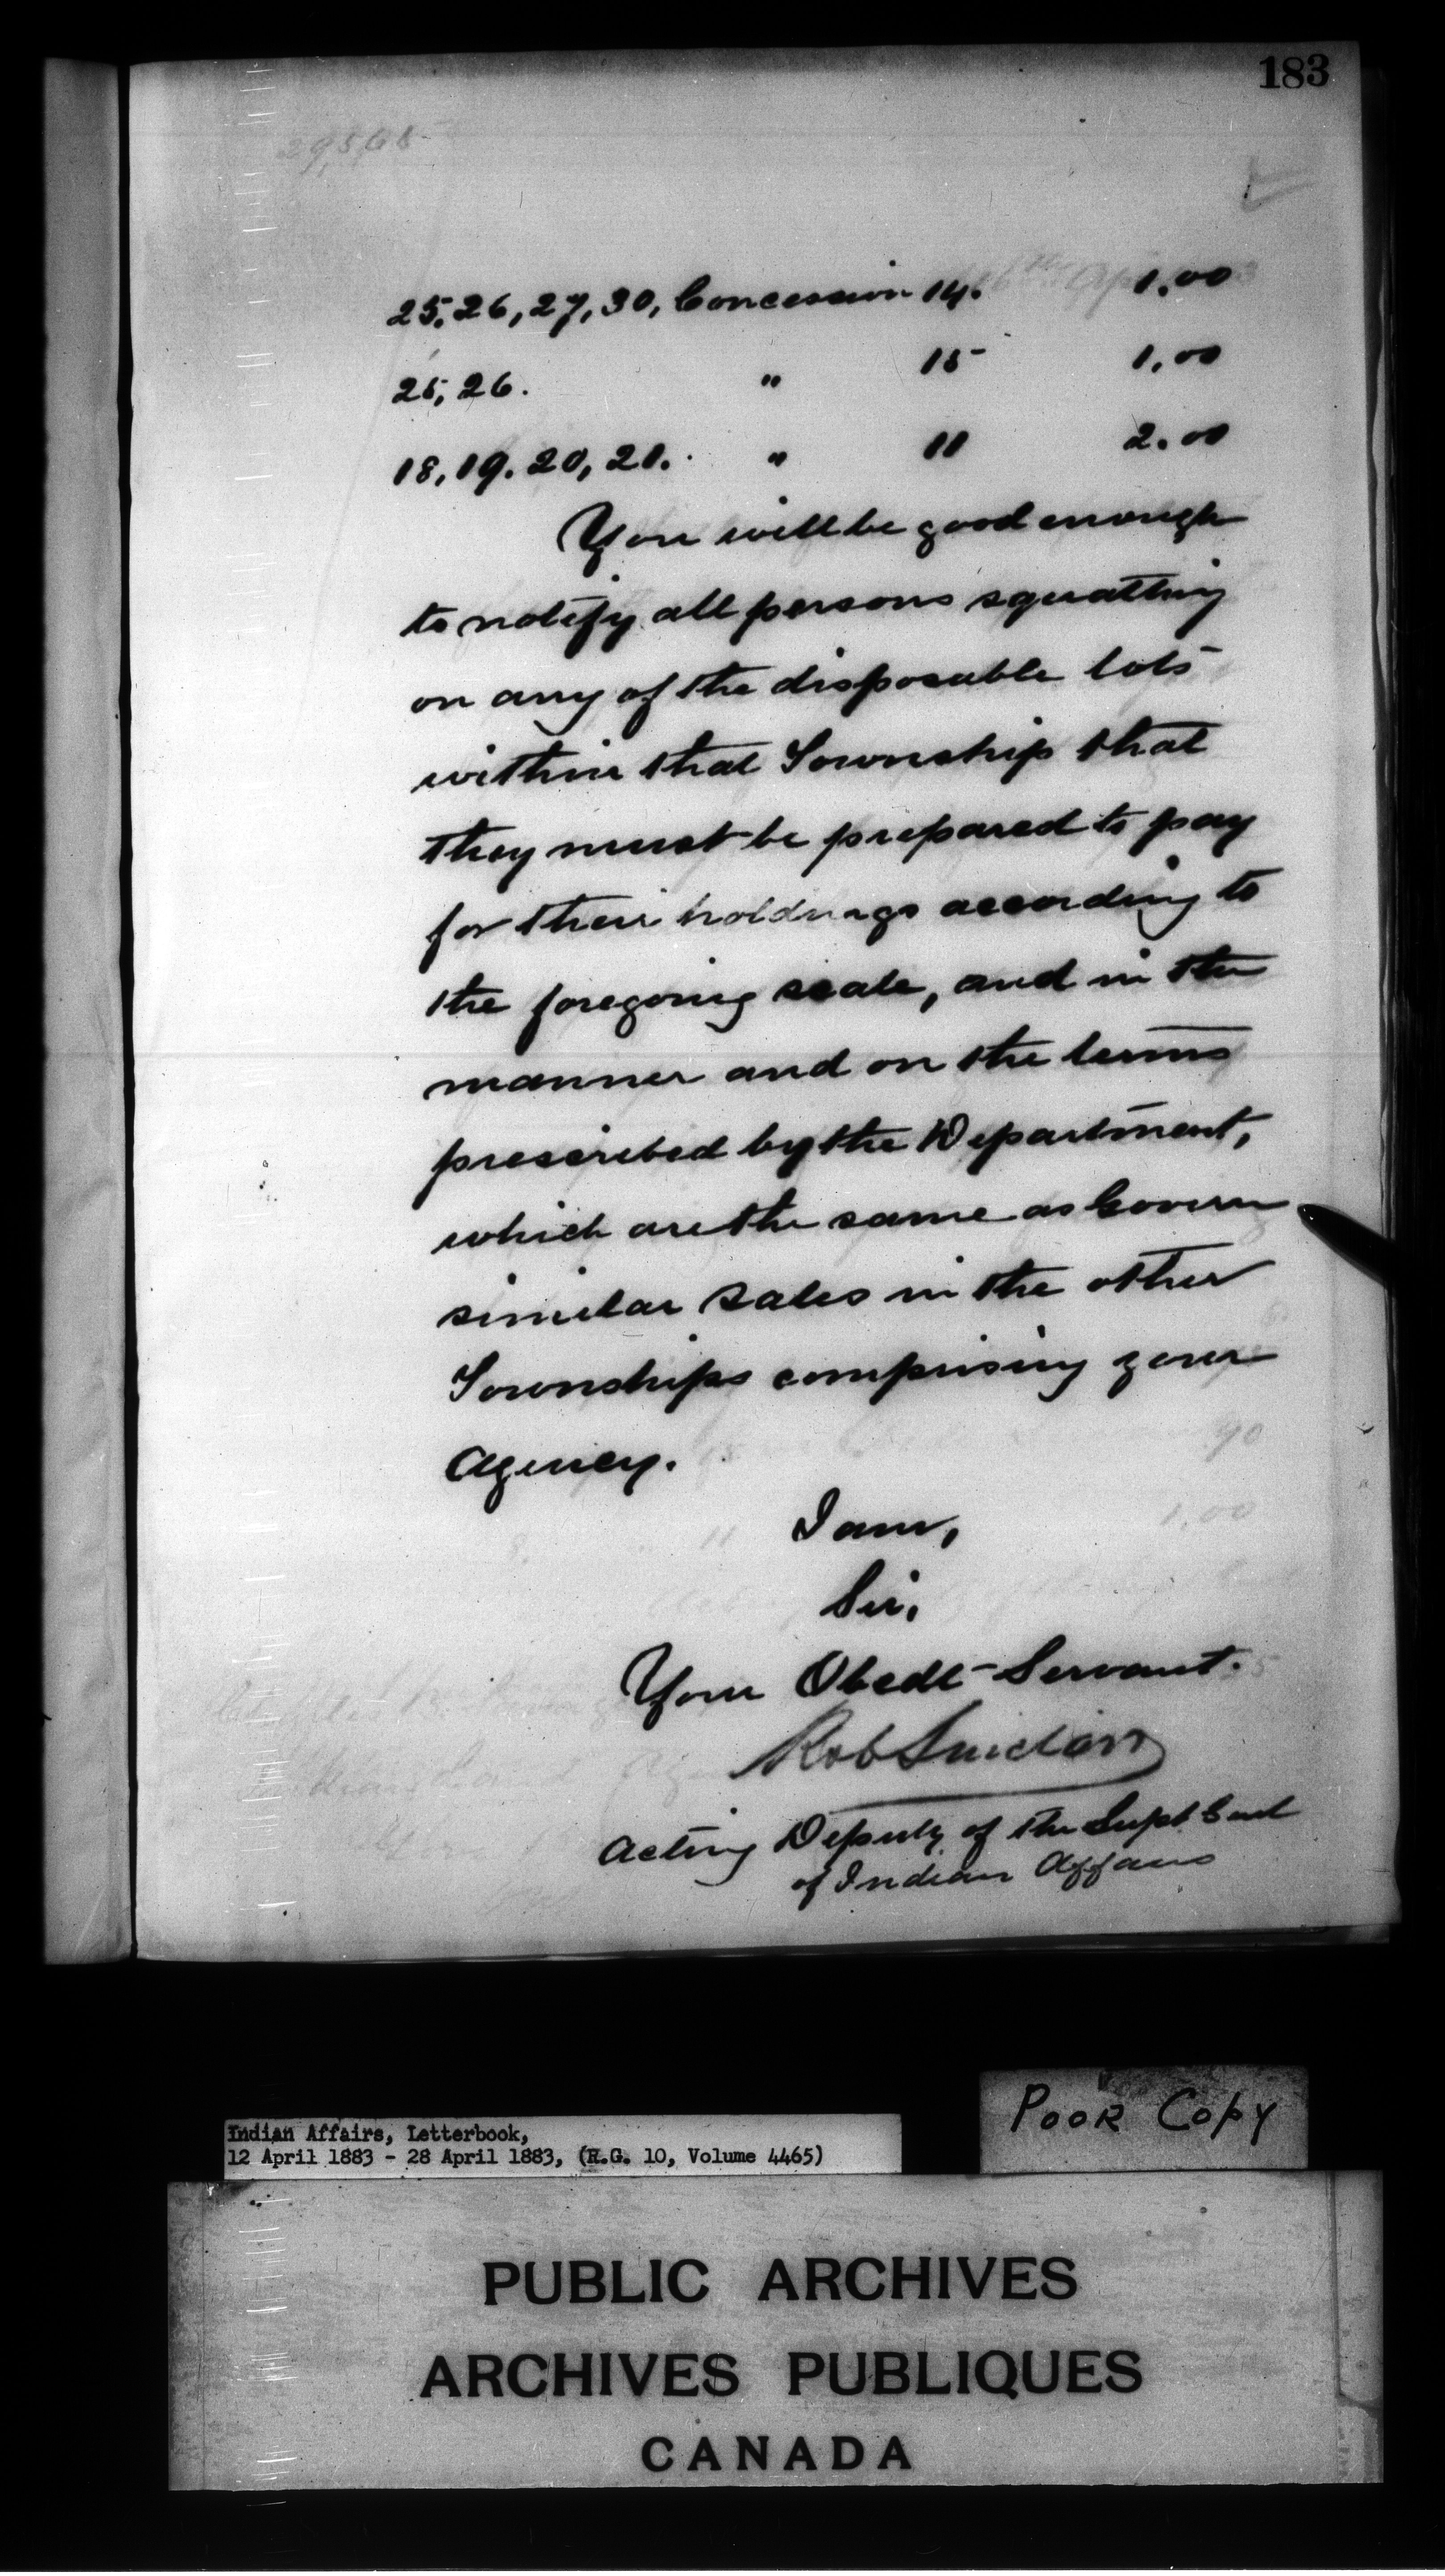 183
25, 26, 27, 30, Concession 14. 1.00
25, 26. " 15 1.00
18, 19. 20, 21. " 11 2.00
You will be good enough
to notify all persons squatting
on any of the disposable lots
within that Township that
they must be prepared to pay
for their holdings according to
the foregoing scale, and in the
manner and on the terms
prescribed by the Department,
which are the same as Govern
similar sales in the other
Townships comprising your
Agency.
I am,
Sir,
Your Obedt Servant.
Rob Sinclair
Acting Deputy of the Supt Genl
of Indian Affairs
POOR COPY
Indian Affairs, Letterbook,
12 April 1883 - 28 April 1883, (R.G. 10, Volume 4465)
PUBLIC ARCHIVES
ARCHIVES PUBLIQUES
CANADA